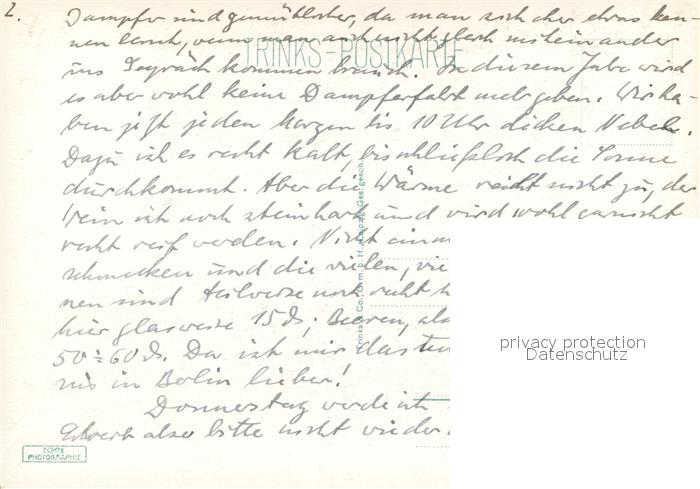 2.
Dampfer sind gemütlicher, da man sich eher etwas ken-
nen lernt, wenn man auch nicht gleich mit einander
TRINKS-POSTKARTE
ins Gespräch kommen braucht. In diesem Jahr wird
es aber wohl keine Dampferfahrt mehr geben. Wir ha-
ben jetzt jeden Morgen bis 10 Uhr dicken Nebel.
Dazu ist es recht kalt, bis schließlich die Sonne
durchkommt. Aber die Wärme reicht nicht zu, der
Wein ist noch steinhart und wird wohl garnicht
recht reif werden. Nicht einm
schmecken und die vielen, vie
nen sind teilweise noch recht
hier glasweise 15 ₰; Beeren, al
50÷60 ₰. Da ist mir das
in Berlin lieber!
Donnerstag werde ich
also bitte nicht wieder
Trinks & Co., G.m.b.H., Leipzig Ges. gesch.
privacy protection
Datenschutz
ECHTE
PHOTOGRAPHIE